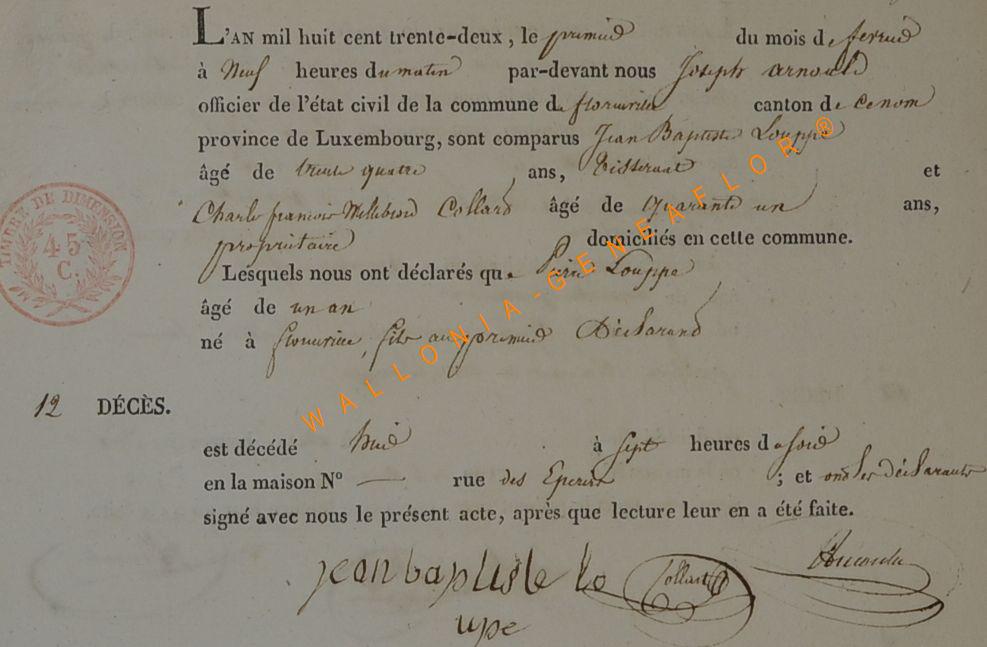 L'AN mil huit cent trente-deux, le premier du mois de fevrier
à Neuf heures du matin par-devant nous Joseph arnould
officier de l'état civil de la commune de florenville canton de
province de Luxembourg, sont comparus Jean Baptiste Louppe
âgé de trente quatre ans, Tisserant et
Charles francois Willebrord Collard âgé de quarante un ans,
propriétaire domiciliés en cette commune.
Lesquels nous ont déclarés que Pierre Louppe
âgé de un an
né à florenville, fils au premier Déclarand
12 DÉCÈS.
est décédé hier à sept heures du soir
en la maison N° — rue des ; et ont les déclarants
signé avec nous le présent acte, après que lecture leur en a été faite.
jean baptiste lo Collard Arnould
upe
TIMBRE DE DIMENSION
45
C.
WALLONIA-GENEAFLOR®